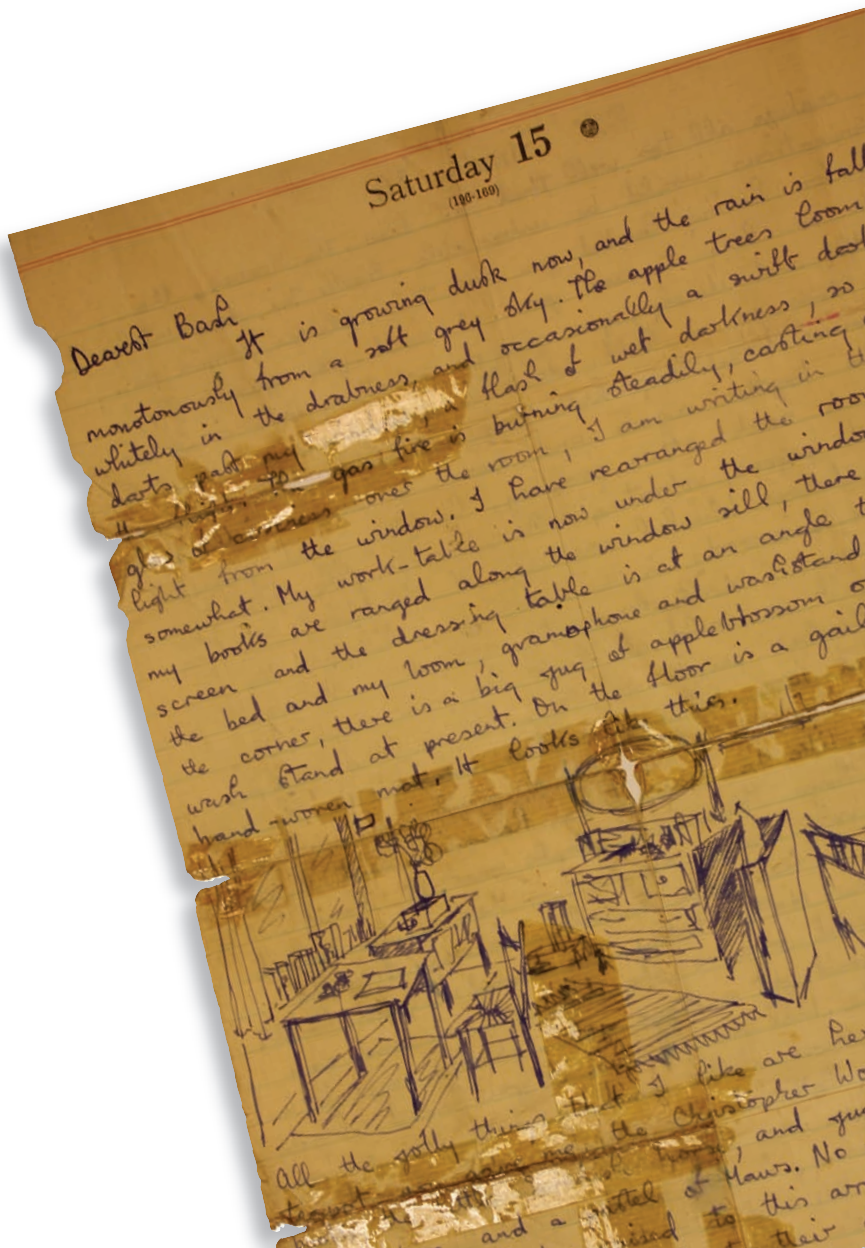 Saturday 15
(196-169)
Dearest Bash
It is growing dusk now, and the rain is fall
monotonously from a soft grey sky. The apple trees loom
whitely in the drabness, and occasionally a swift dark
darts past my a flash of wet darkness, so
gas fire is burning steadily, casting
glow of over the room, I am writing in the
light from the window. I have rearranged the room
somewhat. My work-table is now under the window
my books are ranged along the window sill, there
screen and the dressing table is at an angle
the bed and my loom, gramophone and washstand
the corner, there is a big jug of appleblossom o
wash stand at present. On the floor is a gail
hand-woven mat. It looks like this.
All the jolly things that I like are her
teapot you gave me, the Christopher Wo
the horse, and
and a of Maws. No
to this arr
their